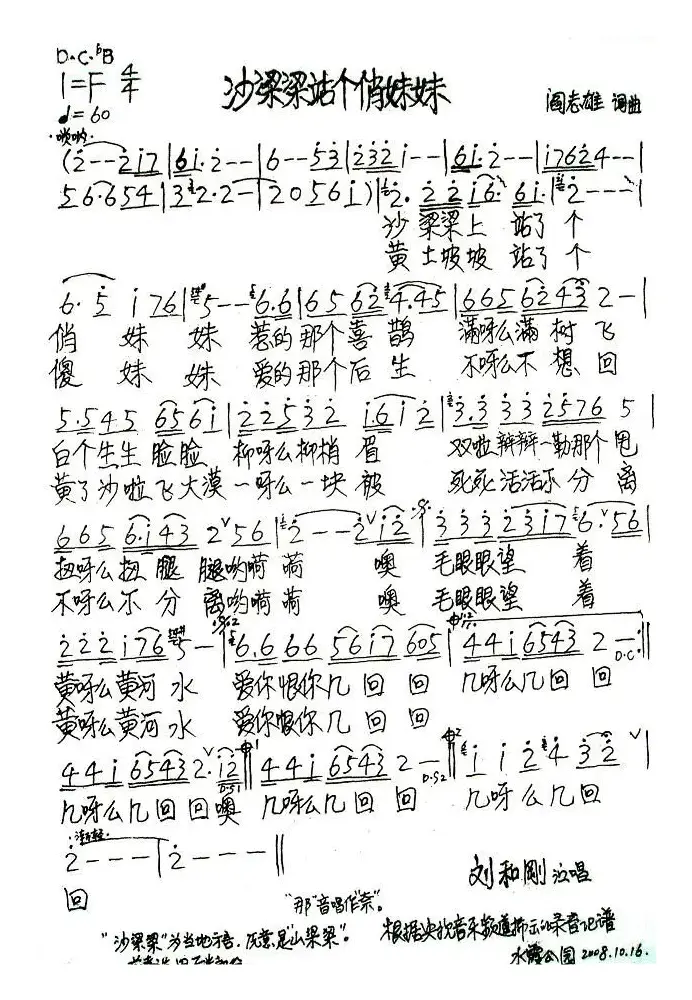 D.C.ᵇB
1=F 4/4
♩=60
沙梁梁站个俏妹妹
阎志雄 词曲
·唢呐·
(2̇--2̇i7|6i·2̇--|6--5̇3̇|2̇3̇2̇i--|6i·2̇--|i7624--|
56·654|32·2-|2056i)|2̇·2̇2̇i6·6i·|2̇---|
沙 梁梁上 站了 个
黄 土坡坡 站了 个
6·5 i76|5--6·6|656̇2̇4·45|6656243 2-|
俏 妹 妹 惹的那个喜 鹊 满呀么满 树 飞
傻 妹 妹 爱的那个后 生 不呀么不 想 回
5·545 656i|2̇2̇5̇3̇2̇ i6i2̇|3̇·3̇3̇3̇2̇576 5|
白个生生脸脸 柳呀么柳梢 眉 双啦辫辫一勒那个 甩
黄了沙啦飞大漠 一呀么一块 被 死死活活不分 离
665 6·i43 2ᵛ56|2̇--2̇ᵛi2̇|3̇3̇3̇2̇3̇i7 6·ᵛ56|
扭呀么扭 腿 腿哟嗬 嗬 噢 毛眼眼望 着
不呀么不 分 离哟嗬 嗬 噢 毛眼眼望 着
2̇2̇2̇i76 5-|6·666 56i7 605|44i6543 2-‖
D.C.
黄呀么黄河 水 爱你恨你几 回 回 几呀么几 回 回
黄呀么黄河 水 爱你恨你几 回 回
44i6543 2·ᵛi2̇|44i6543 2-‖i i 2̇ 4̇ 3̇2̇ᵛ|
D.S1 D.S2
几呀么几 回 回噢 几呀么几 回 回 几 呀 么 几 回
·渐轻·
2̇---|2̇---‖
回
刘和刚 演唱
"那"音唱作"奈"。
"沙梁梁"为当地方言。原意是"山梁梁"。
根据央视音乐频道播示的录音记谱
水霞公园 2008.10.16.